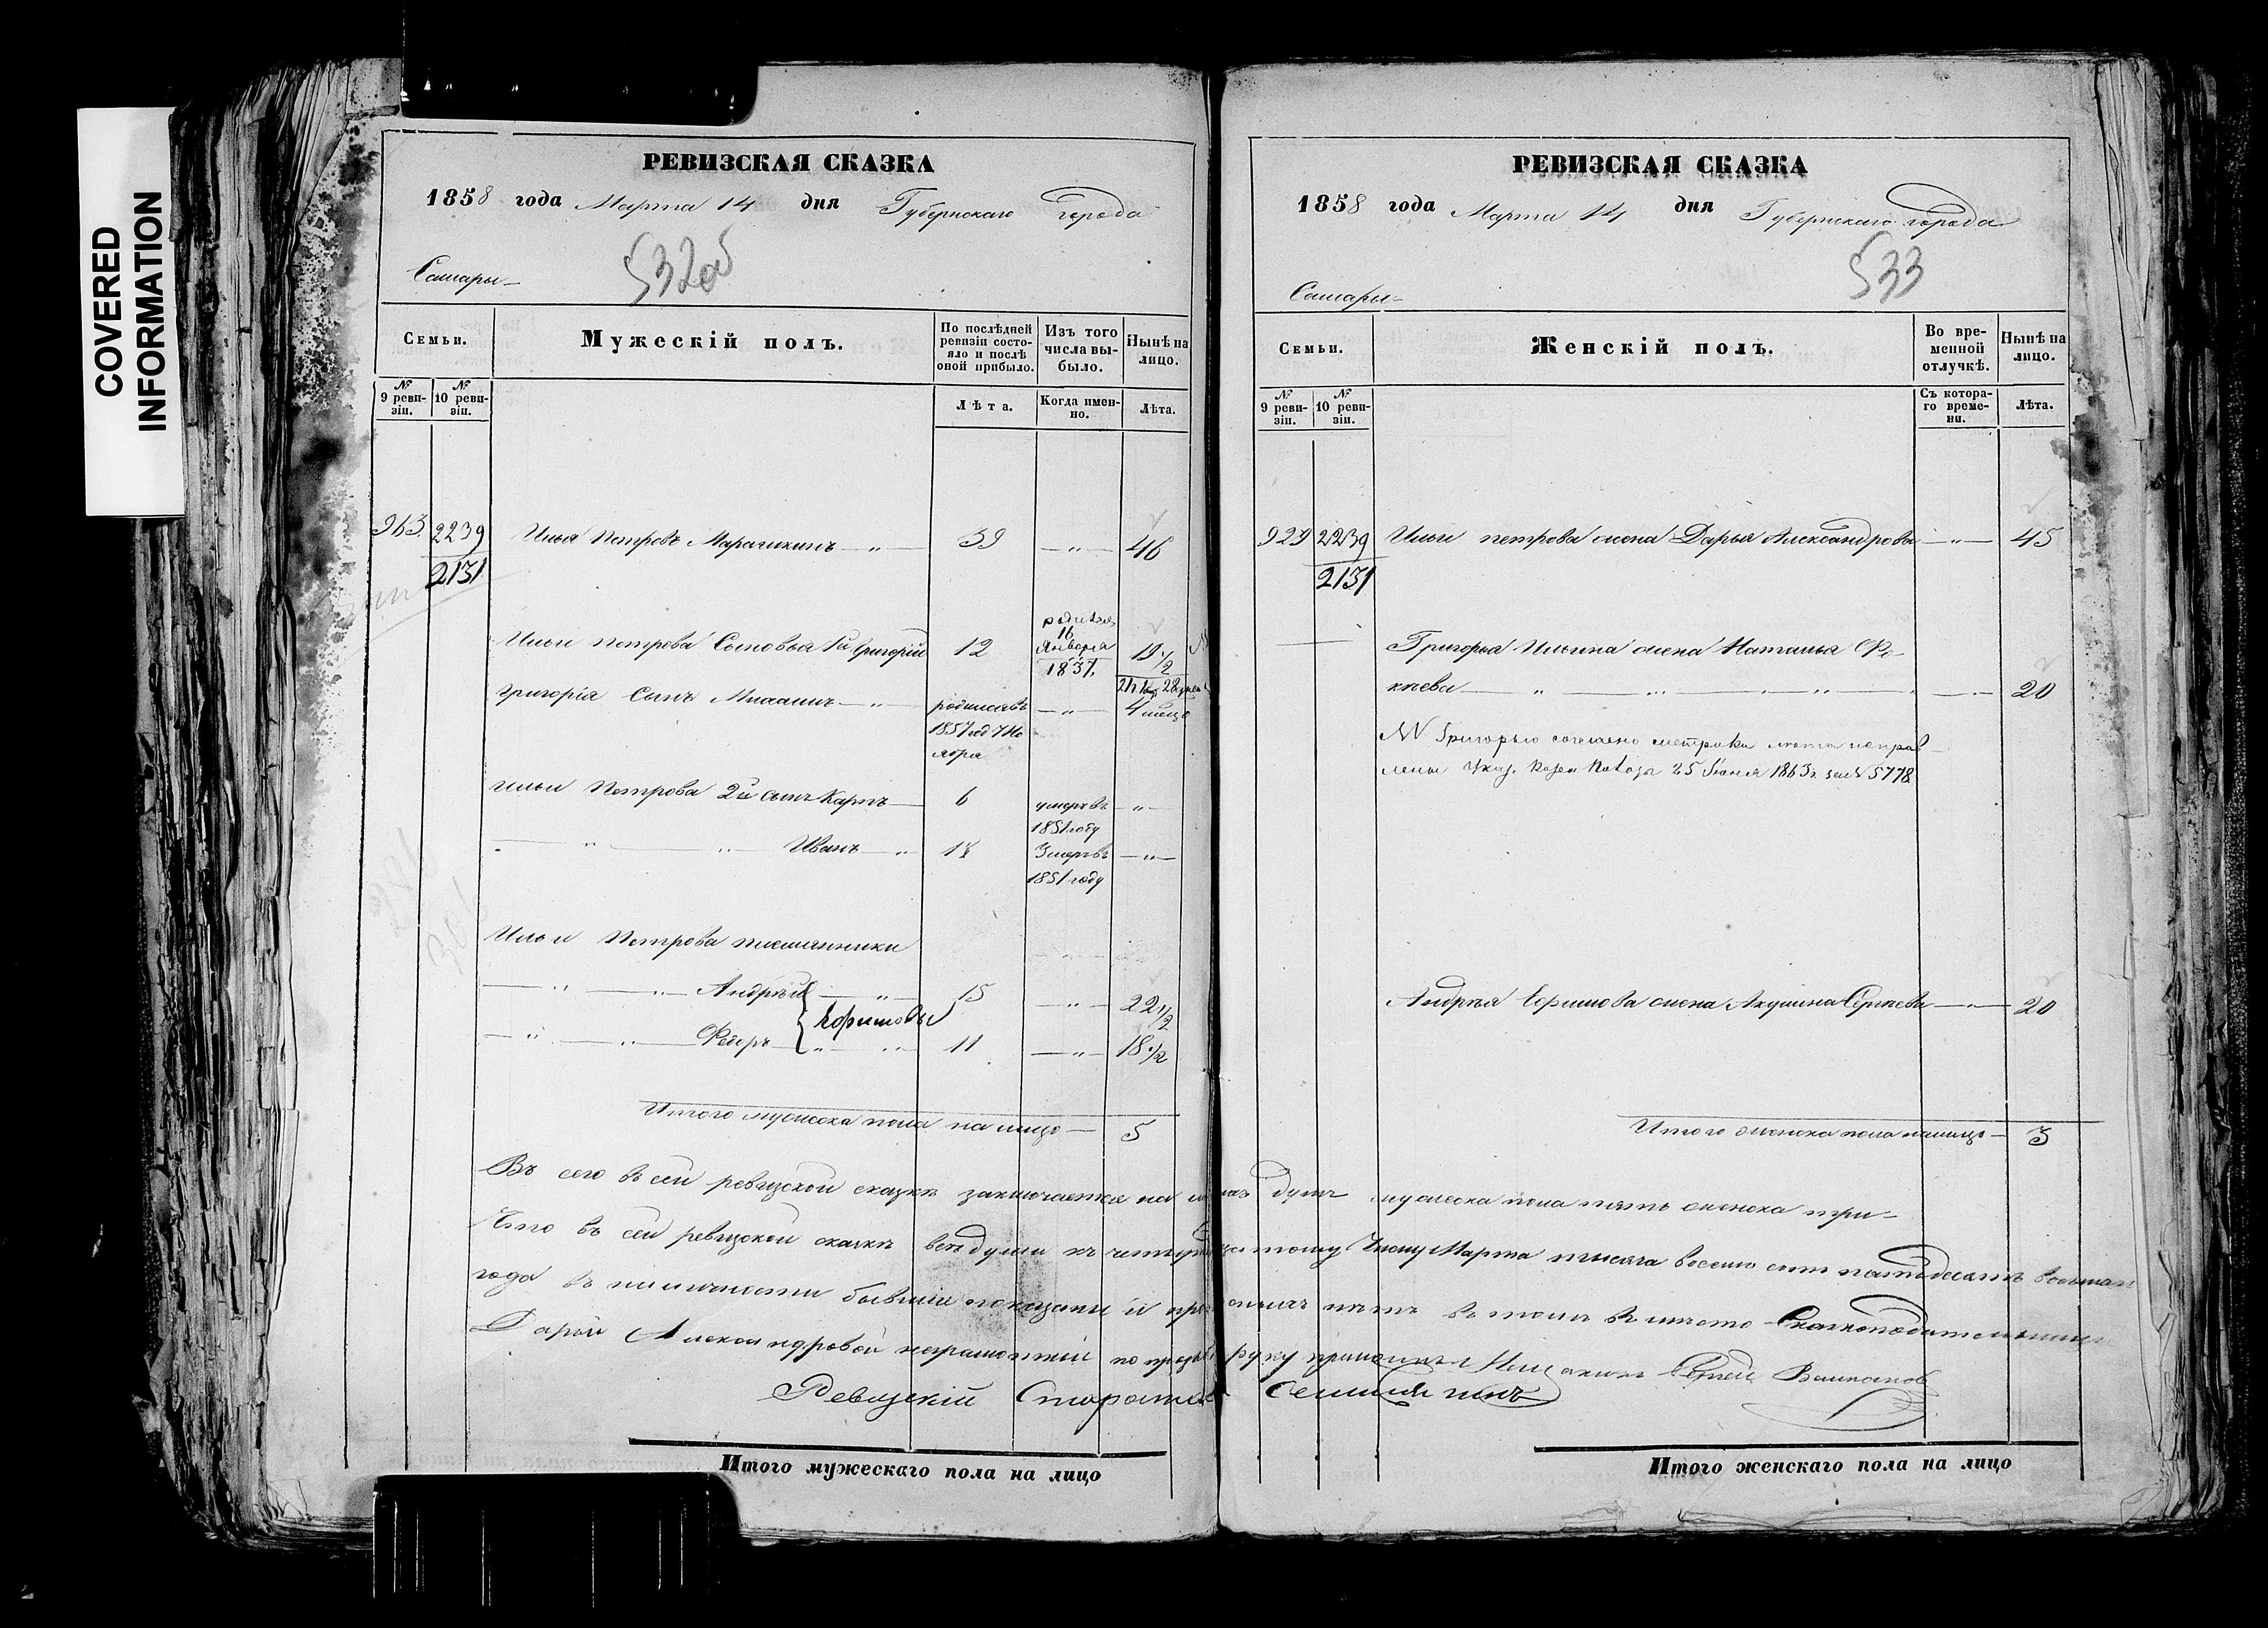 COVERED
INFORMATION
РЕВИЗСКАЯ СКАЗКА
1858 года Марта 14 дня Губернскаго города
532об
Самары
Семьи.
Мужескій полъ.
По послѣдней ревизіи состояло и послѣ оной прибыло.
Изъ того числа выбыло.
Нынѣ на лицо.
№ 9 ревизіи.
№ 10 ревизіи.
Лѣта.
Когда именно.
Лѣта.
963. 2239 Илья Петровъ 39 — „ — 46
2131
Ильи Петрова Сыновья 1й Григорій 12 родился 16 Января 1837 19 1/2
Григорія Сынъ родился въ — „ — 4 месяц
1857 год 7 Но
ября
Ильи Петрова 2й сынъ Карпъ 6 умеръ въ — „ —
1851 году
„ „ Иванъ „ умеръ въ — „ —
1851 году
Ильи Петрова племянники
„ „ Андрей „ 15 — „ — 22 1/2
Ефимовы
„ „ Федоръ „ „ 11 — „ — 18 1/2
Итого мужеска пола на лицо — 5
Итого мужескаго пола на лицо
РЕВИЗСКАЯ СКАЗКА
1858 года Марта 14 дня Губернскаго города
533
Самары
Семьи.
Женскій полъ.
Во временной отлучкѣ.
Нынѣ на лицо.
№ 9 ревизіи.
№ 10 ревизіи.
Съ котораго времени.
Лѣта.
929 2239 Ильи Петрова жена Дарья Александрова — „ — 45
2131
Григорья Ильина жена Наталья Фо-
кѣева 20
Григорью согласно метрики лета исправ-
лены Указ. Казен Палаты 25 Июня 1863 г за № 5778
Андрея Ефимова жена Акулина Сергѣева — „ — 20
Итого женска пола налицо — 3
Въ сего въ сей ревизской сказкѣ заключается на лицо душъ мужеска пола пять женска три
Что въ сей ревизской сказкѣ всѣ души къ четырнадцатому числу Марта тысяча восемь сотъ пятьдесятъ восьмаго
года въ наличности бывшіе показаны и прописныхъ нѣтъ въ томъ вместо Сказкоподательницы
Дарьи Александровой неграмотной по прозьбѣ руку приложилъ Мещанинъ Сергей
Ревизскій Староста
Итого женскаго пола на лицо